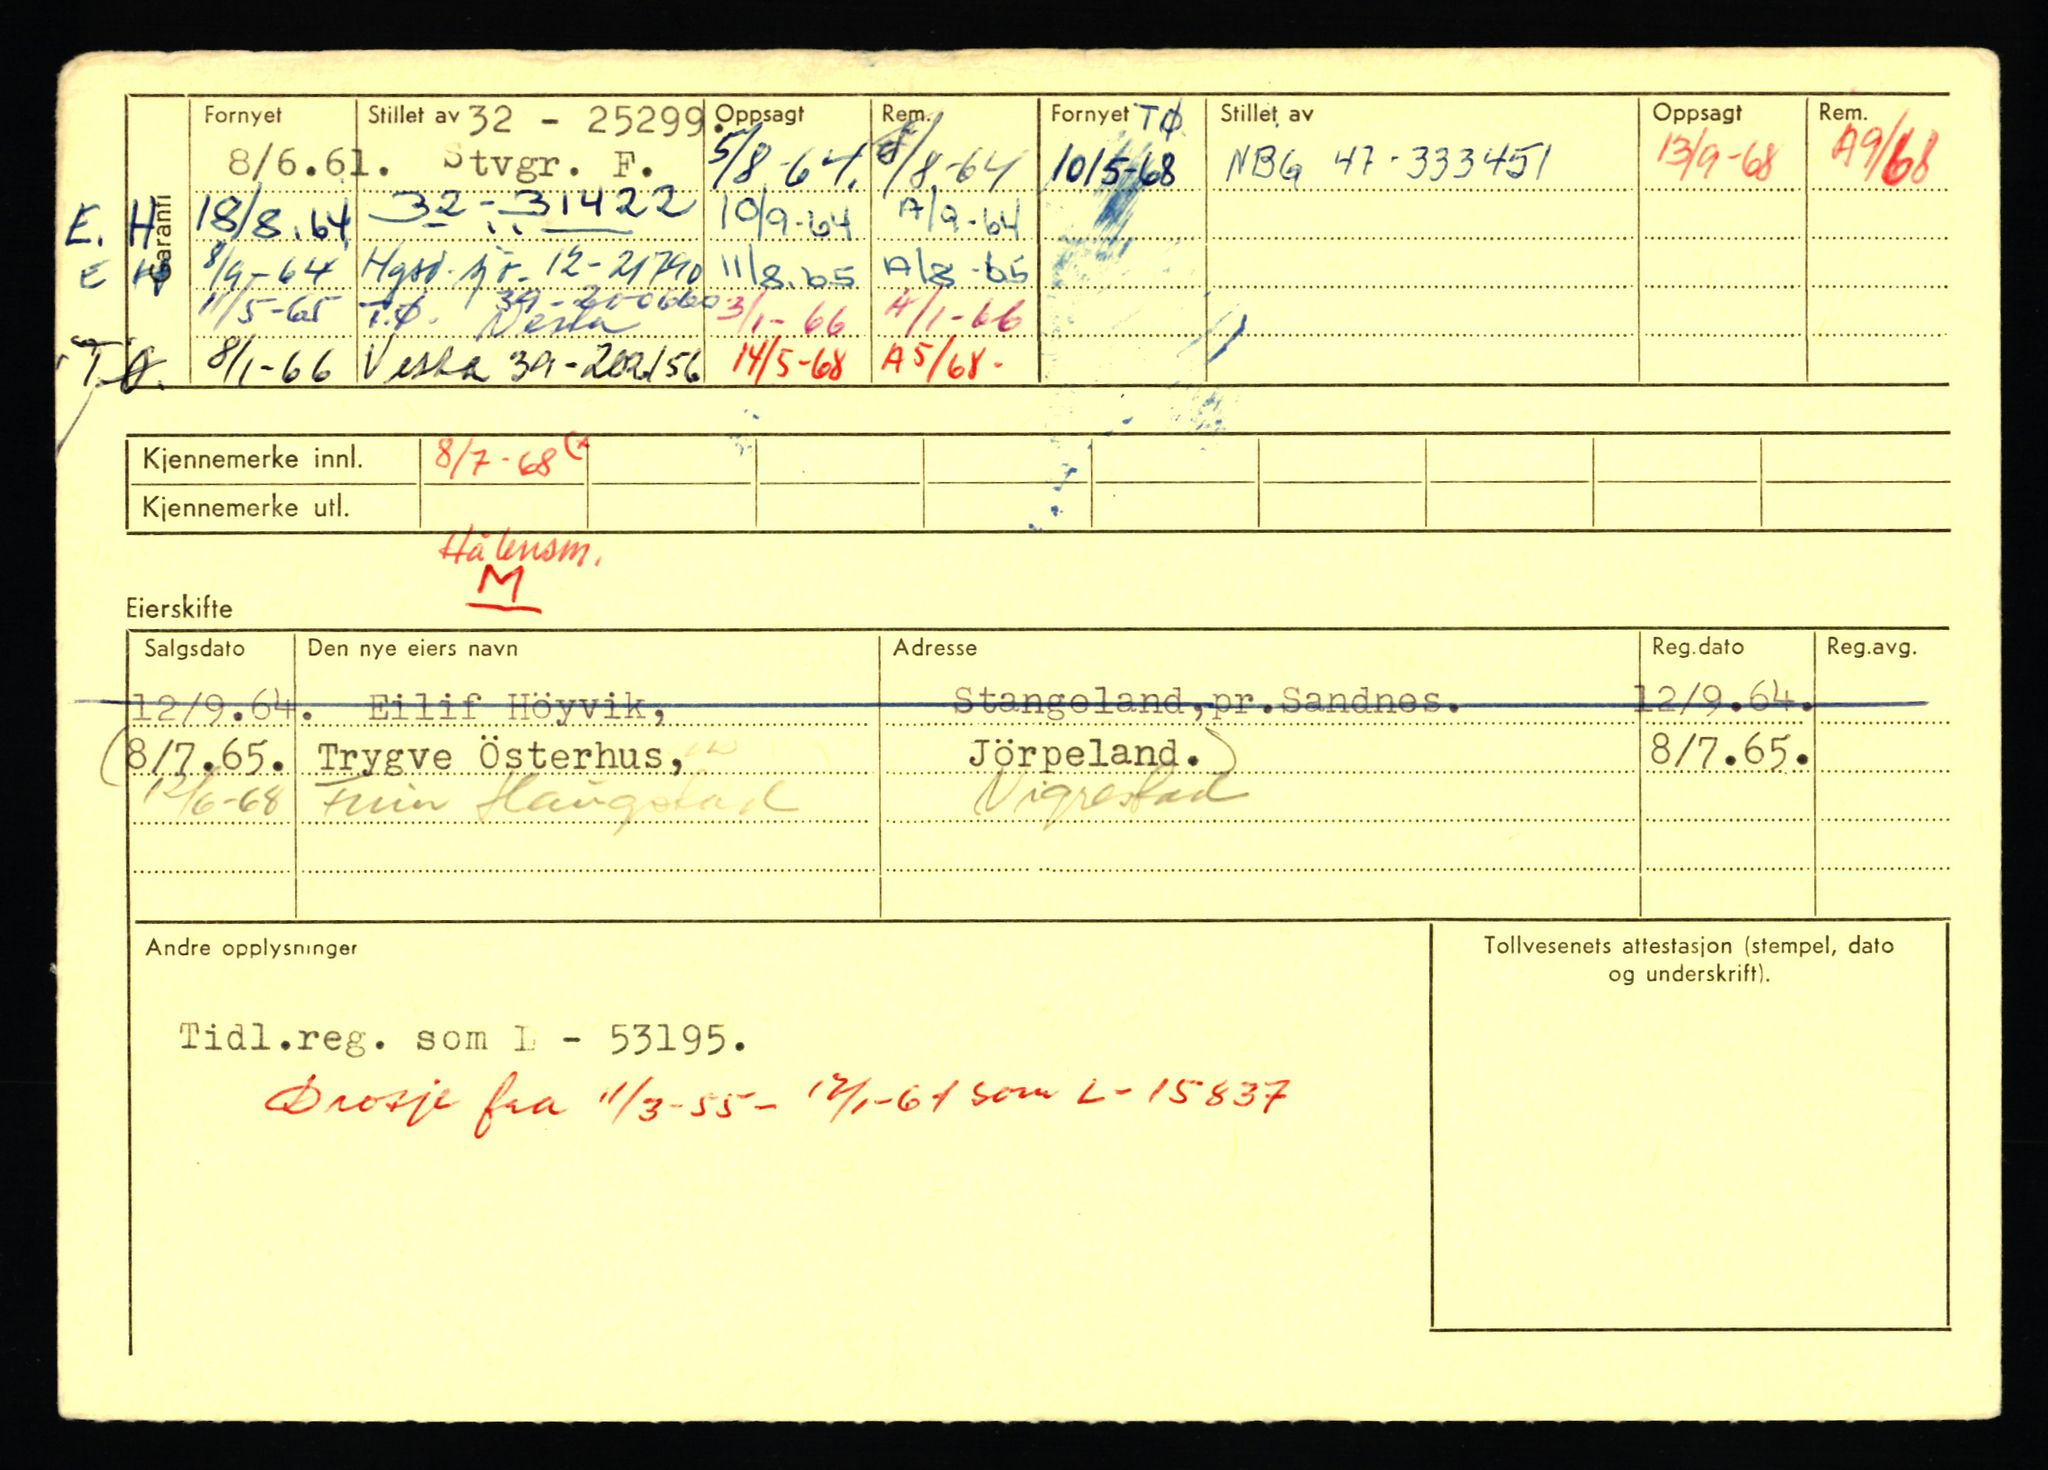 Fornyet Stillet av 32 - 25299. Oppsagt Rem. Fornyet TØ Stillet av Oppsagt Rem.
8/6.61. Stvgr. F. 5/8-64. 8/8-64 10/5-68 NBG 47-333451 13/9-68 A9/68
Garanti
E. H 18/8.64 32-31422 10/9-64 A/9-64
E H 8/9-64 12-21790 11/8.65 A/8-65
11/5-65 T.Ø. 39-200660 Vesta 3/1-66 4/1-66
T.Ø. 8/1-66 Vesta 39-202156 14/5-68 A5/68-
Kjennemerke innl. 8/7-68
Kjennemerke utl.
M
Eierskifte
Salgsdato Den nye eiers navn Adresse Reg.dato Reg.avg.
12/9.64. Eilif Höyvik, Stangeland,pr.Sandnes. 12/9.64.
(8/7.65. Trygve Österhus, Jörpeland.) 8/7.65.
12/6-68 Finn Haugstad Vigrestad
Andre opplysninger
Tollvesenets attestasjon (stempel, dato
og underskrift).
Tidl.reg. som L - 53195.
Drosje fra 11/3-55- 12/1-61 som L-15837